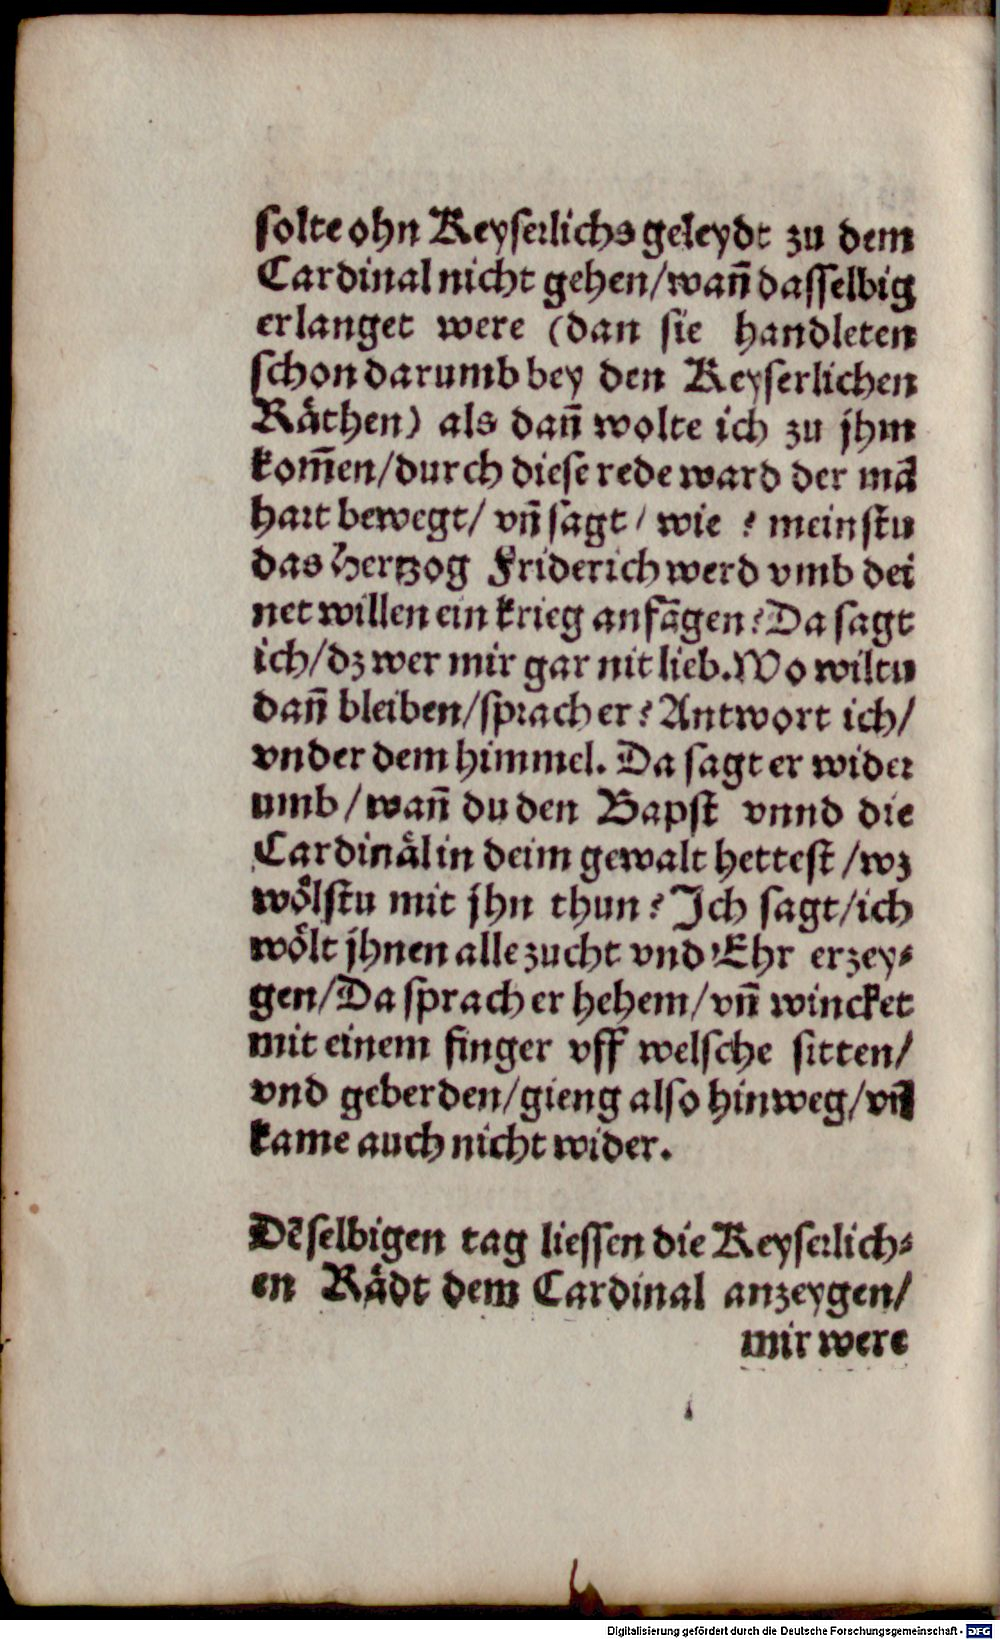 solte ohn Keyserlichs geleydt zu dem
Cardinal nicht gehen/wañ dasselbig
erlanget were (dan sie handleten
schon darumb bey den Keyserlichen
Räthen) als dañ wolte ich zu jhm
kom̃en/durch diese rede ward der mã
hart bewegt/ vñ sagt/ wie ? meinstu
das Hertzog Friderich werd vmb dei
net willen ein krieg anfãgen? Da sagt
ich/dz wer mir gar nit lieb. Wo wiltu
dañ bleiben/sprach er? Antwort ich/
vnder dem himmel. Da sagt er wider
umb/wañ du den Bapst vnnd die
Cardinäl in deim gewalt hettest/wz
wölstu mit jhn thun? Ich sagt/ich
wölt jhnen alle zucht vnd Ehr erzey-
gen/Da sprach er hehem/vñ wincket
mit einem finger vff welsche sitten/
vnd geberden/gieng also hinweg/vñ
kame auch nicht wider.
Dẽselbigen tag liessen die Keyserlich-
en Rädt dem Cardinal anzeygen/
mir were
Digitalisierung gefördert durch die Deutsche Forschungsgemeinschaft - DFG